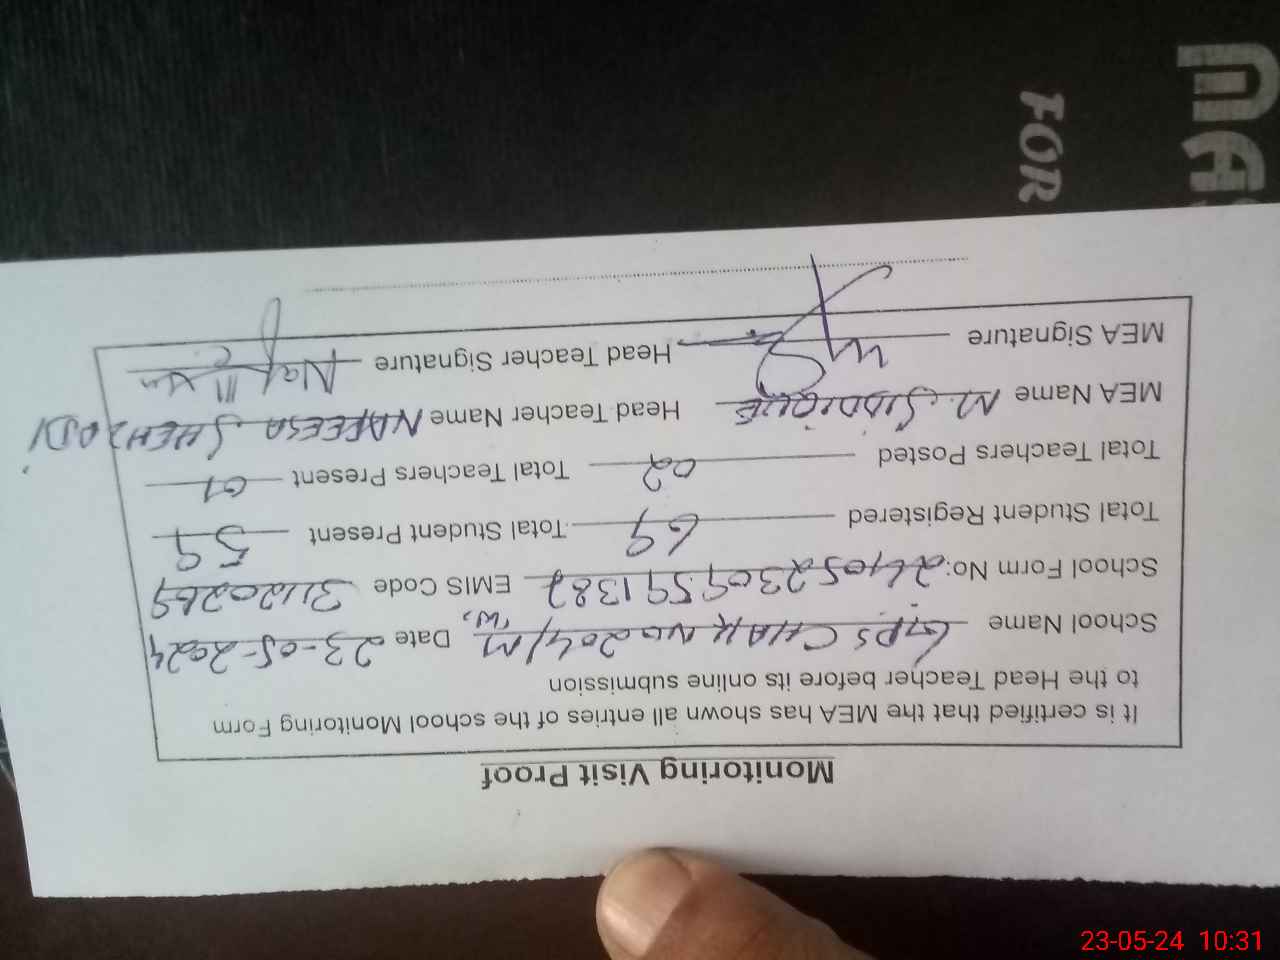 Monitoring Visit Proof
It is certified that the MEA has shown all entries of the school Monitoring Form
to the Head Teacher before its online submission
School Name GPS CHAK No 204/M "W" Date 23-05-2024
School Form No: EMIS Code 31120269
Total Student Registered 69 Total Student Present 59
Total Teachers Posted 02 Total Teachers Present 01
MEA Name M. SIDDIQUE Head Teacher Name NAFEESA SHEHZADI
MEA Signature Head Teacher Signature
FOR
MAS
23-05-24 10:31